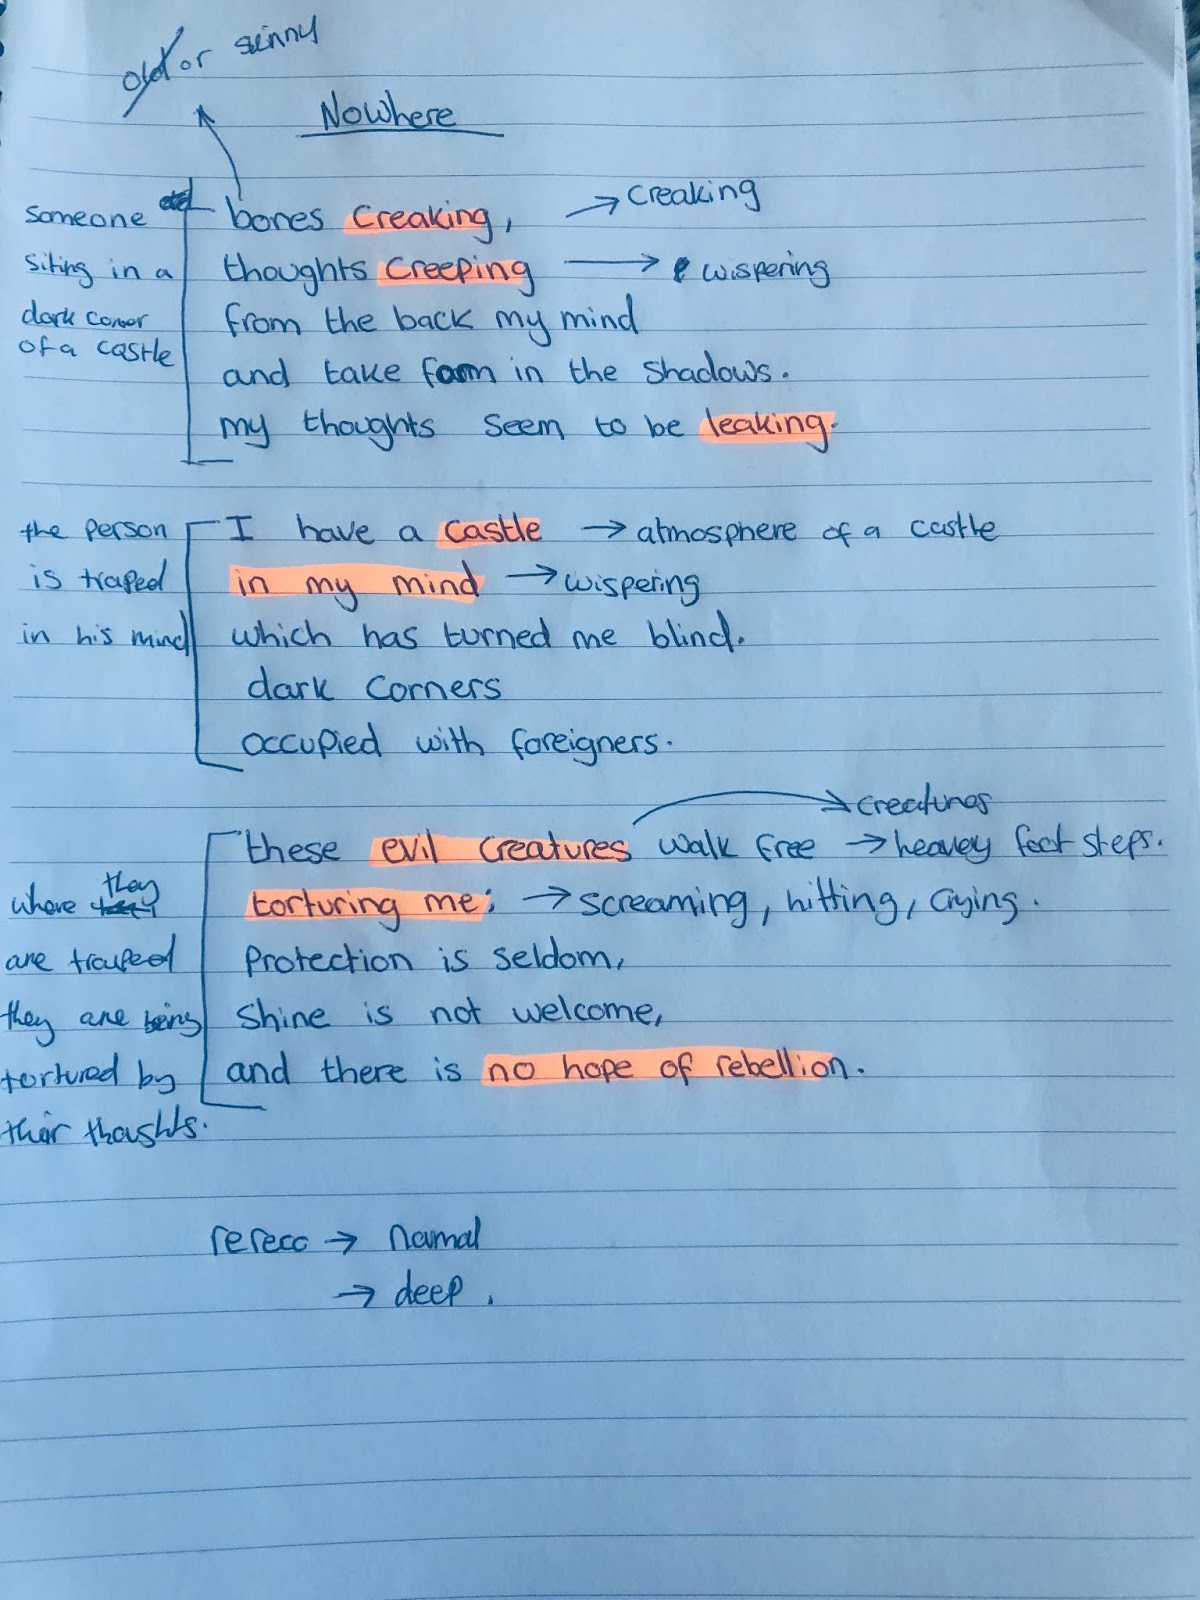 old or sinny
Nowhere
someone bones creaking, → creaking
siting in a thoughts creeping → wispering
dark corner from the back my mind
of a castle and take form in the shadows.
my thoughts seem to be leaking.
the person I have a castle → atmosphere of a castle
is traped in my mind → wispering
in his mind which has turned me blind.
dark corners
occupied with foreigners.
creatures
these evil creatures walk free → heavey foot steps.
where they torturing me; → screaming, hitting, crying.
are trauped Protection is seldom,
they are being Shine is not welcome,
tortured by and there is no hope of rebellion.
their thoughts.
rereco → normal
→ deep.